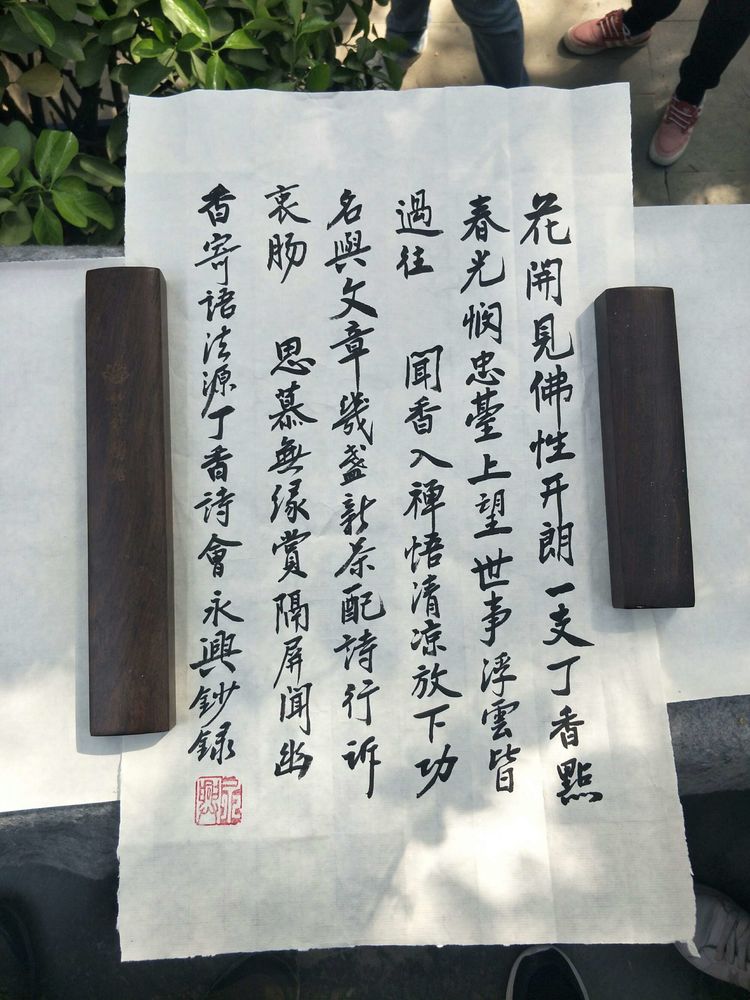 花開見佛性开朗一支丁香點
春光憫忠臺上望世事浮雲皆
過往 聞香入禅悟清凉放下功
名與文章幾盞新茶配詩行訴
衷肠 思慕無缘賞隔屏聞幽
香寄語法源丁香詩會永興鈔録
永興